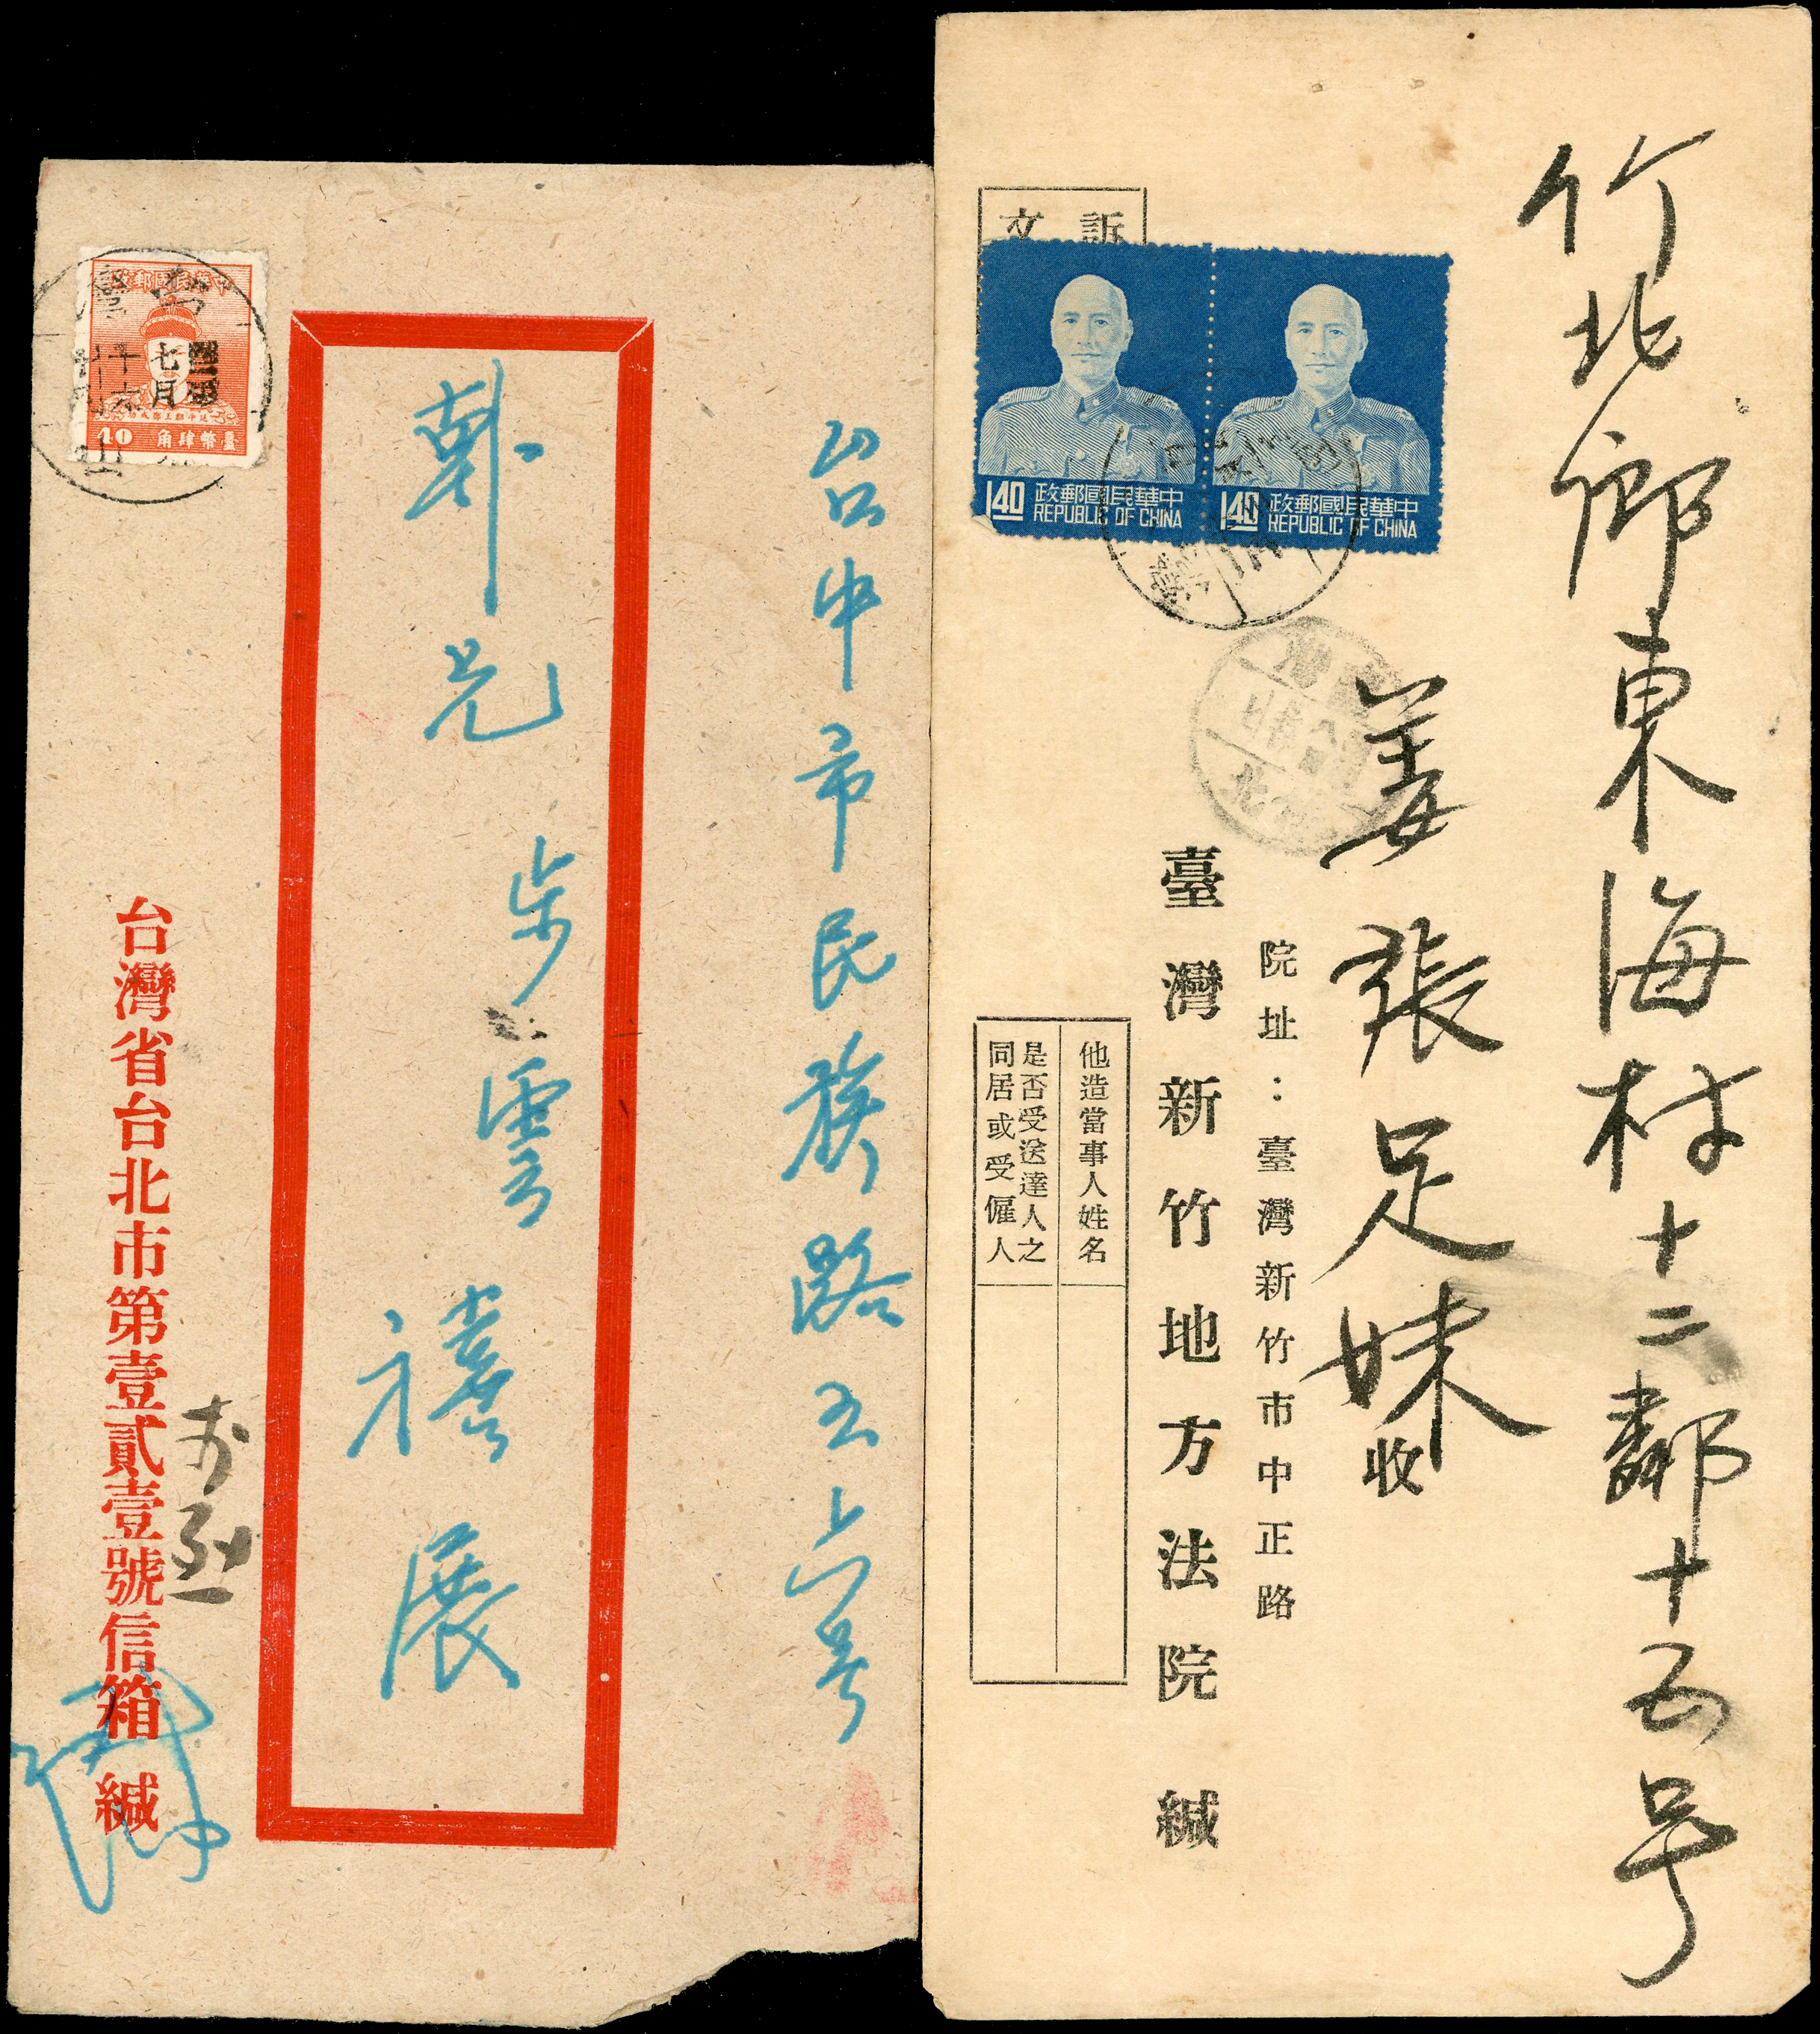 台中市民族路五六号
鄭兄步雲禧展
台灣省台北市第壹貳壹號信箱 緘
中華民國郵政
40 臺幣肆角
七月
十六
竹北鄉東海村十二鄰十五号
姜張足妹收
院址：臺灣新竹市中正路
臺灣新竹地方法院 緘
他造當事人姓名
是否受送達人之
同居或受僱人
訴
文
中華民國郵政
140 REPUBLIC OF CHINA
中華民國郵政
140 REPUBLIC OF CHINA